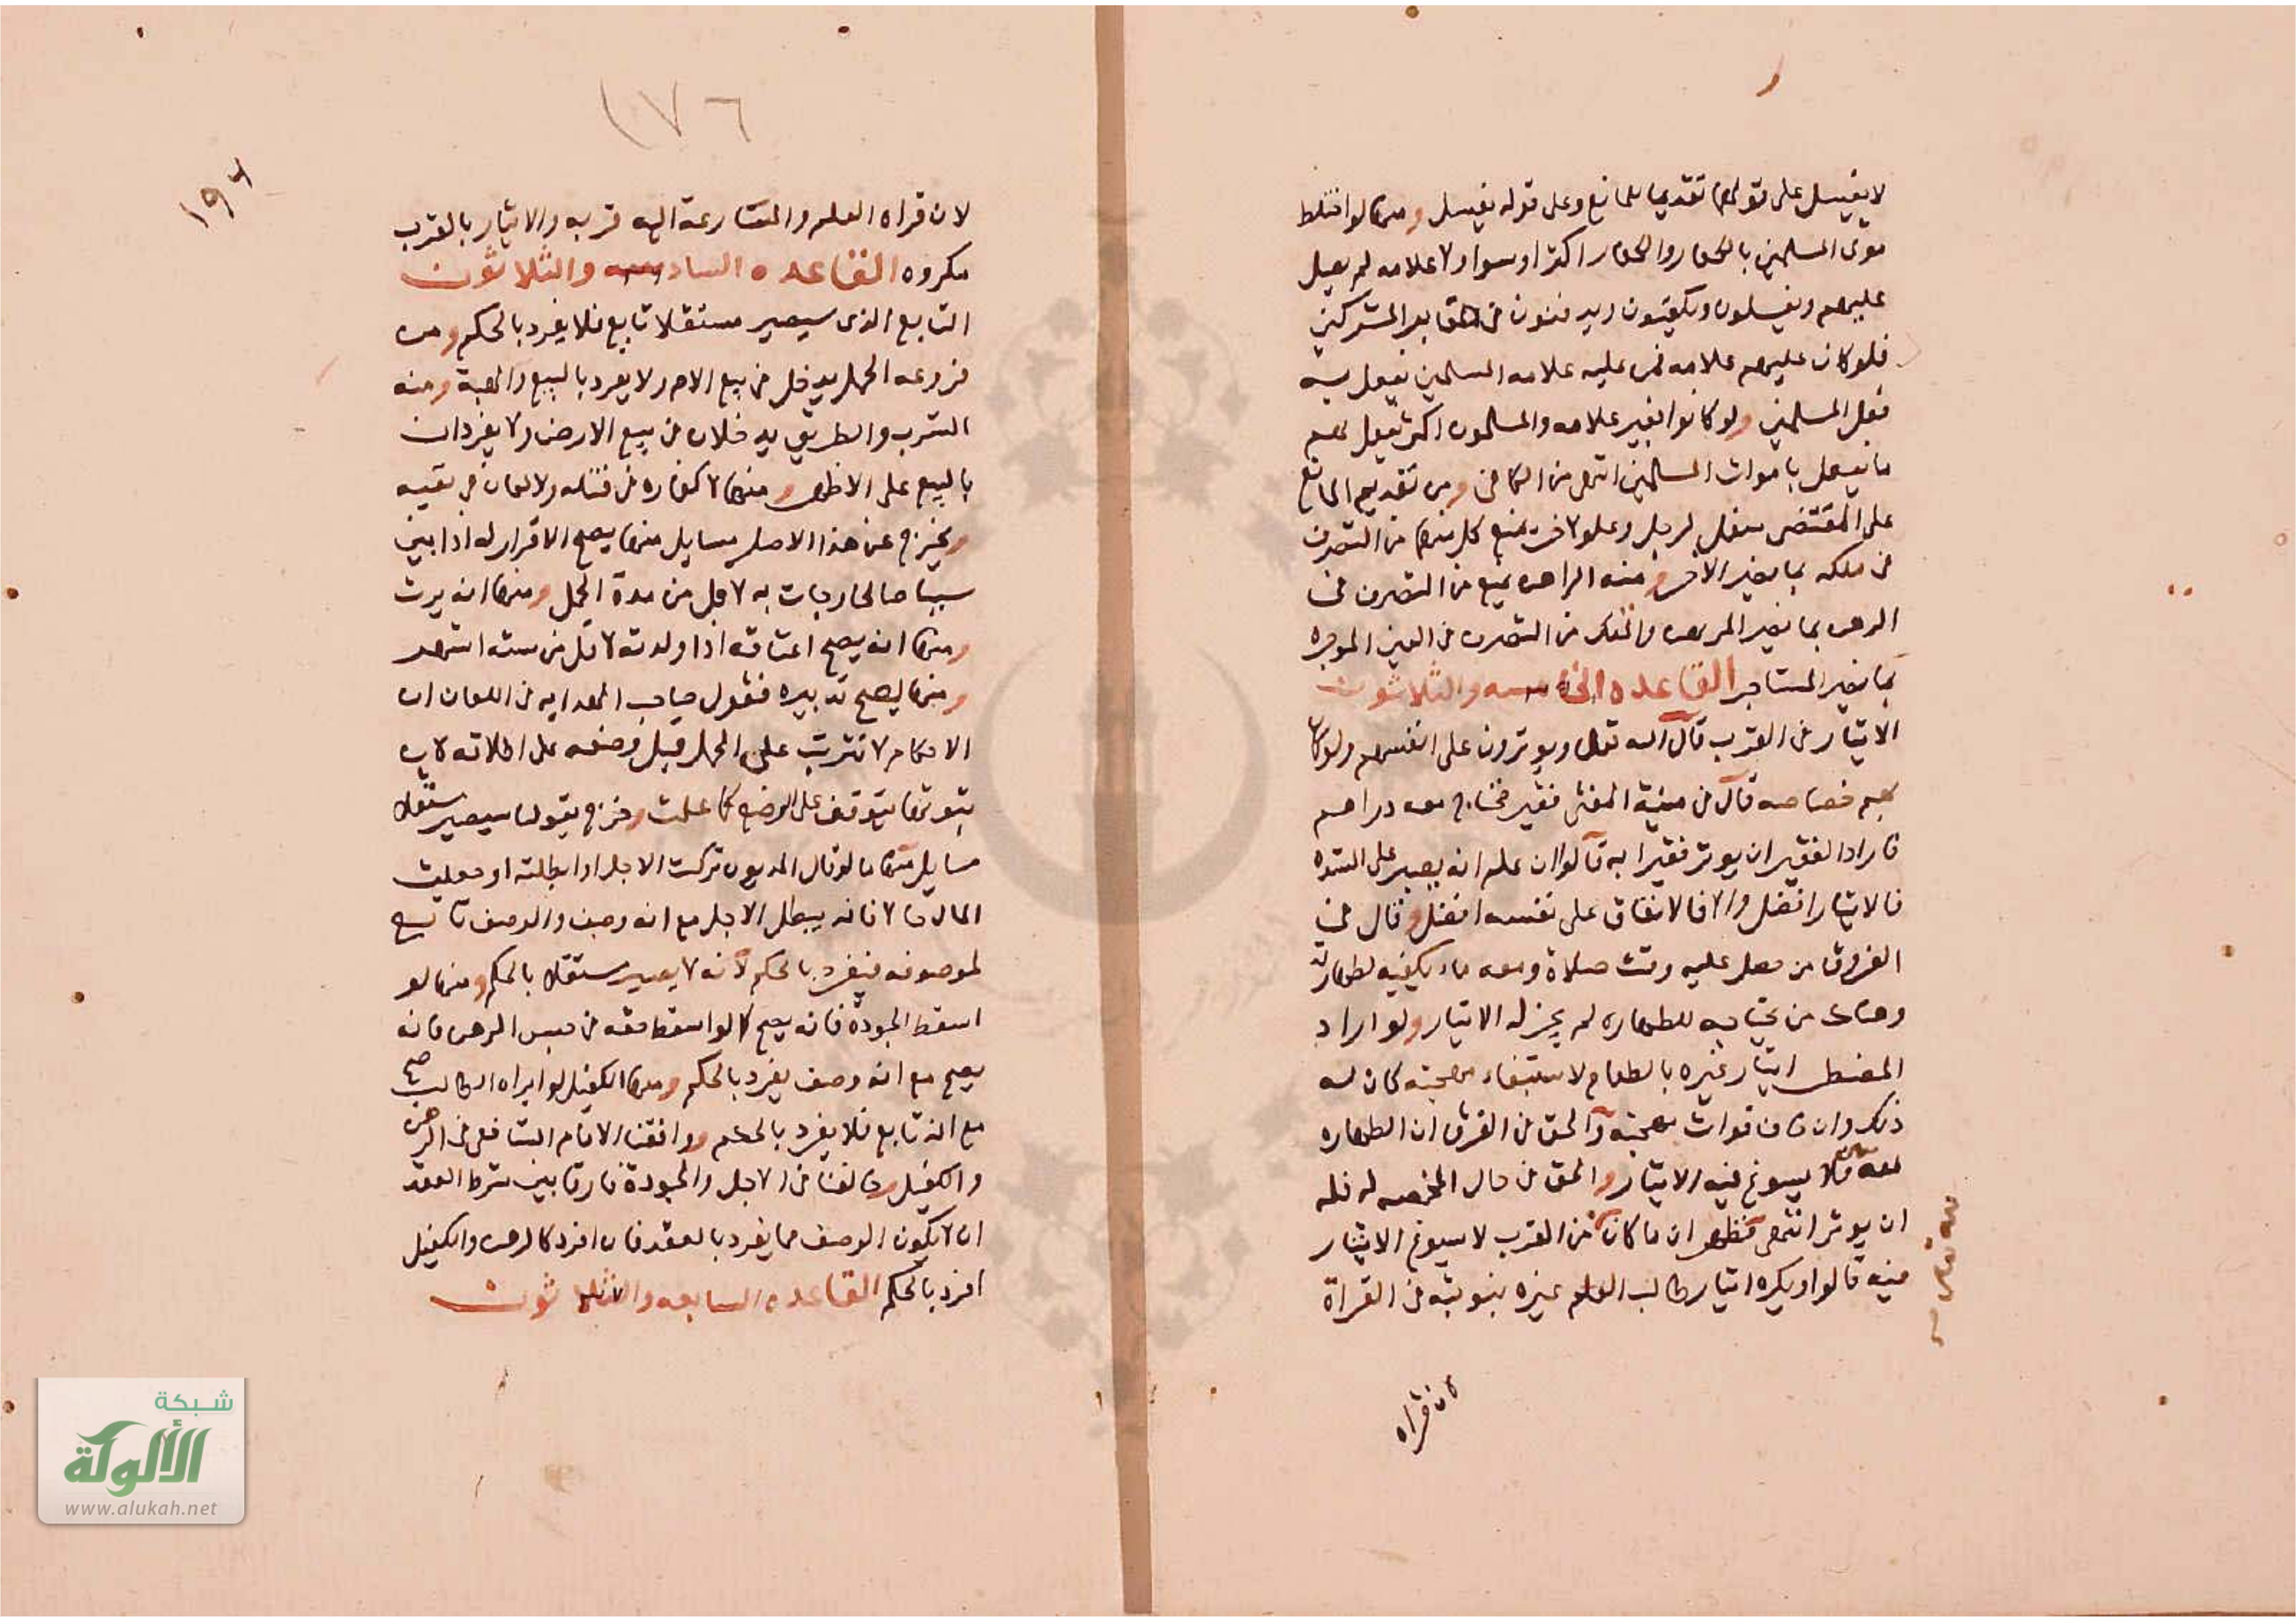 لا يغسل على قولهما تقديما للمانع وعلى قوله يغسل ومنها لو اختلط
موتى المسلمين بالكفار والكفار اكثر او سوا ولا علامه لم يصل
عليهم ويغسلون ويكفنون ويدفنون في مقابر المشركين
فلو كان عليهم علامه فمن عليه علامه المسلمين يفعل به
فعل المسلمين ولو كانوا بغير علامه والمسلمون اكثر يفعل بهم
ما يفعل باموات المسلمين انتهى من الكافي ومن تقديم المانع
على المقتضى سفل لرجل وعلو لاخر يمنع كل منهما من التصرف
في ملكه بما يضر الاخر ومنه الراهن يمنع من التصرف في
الرهن بما يضر المرتهن والمفكر من التصرف في العين الموجره
بما يضر المستاجر القاعده الخامسه والثلاثون
الايثار في القرب قال الله تعالى ويوثرون على انفسهم ولو كان
بهم خصاصه قال في منية المفتى فقير محتاج معه دراهم
فاراد الفقير ان يوثر فقيرا به قالوا ان علم انه يصبر على الشده
فالايثار افضل والا فالانفاق على نفسه افضل وقال في
الفروق من دخل عليه وقت صلاة ومعه ماء يكفيه لطهارته
وهناك من يحتاجه للطهاره لم يجز له الايثار ولو اراد
المضطر ايثار غيره بالطعام لاستبقاء مهجته كان له
ذلك وان خاف فوات مهجته والحق في الفرق ان الطهاره
لله فلا يسوغ فيه الايثار والحق في حال المخمصه له فله
ان يوثر انتهى فظهر ان ما كان من القرب لا يسوغ الايثار
فيه قالوا ويكره ايثار طالب العلم غيره بنوبته في القراة
لان قراه
١٧٦
١٩٦
لان قراه العلم والمسارعة اليه قربه والايثار بالقرب
مكروه القاعده السادسه والثلاثون
التابع الذى سيصير مستقلا تابع فلا يفرد بالحكم ومن
فروعه الحمل يدخل في بيع الام ولا يفرد بالبيع والهبة ومنه
الشرب والطريق يدخلان في بيع الارض ولا يفردان
بالبيع على الاظهر ومنها لا كفاره في قتله ولا لعان في نفيه
ويخرج عن هذا الاصل مسايل منها يصح الاقرار له اذا بين
سببا صالحا وجات به لاقل من مدة الحمل ومنها انه يرث
ومنها انه يصح اعتاقه اذا ولدته لاقل من سته اشهر
ومنها يصح تدبيره فقول صاحب الهدايه في اللعان ان
الاحكام لا تترتب على الحمل قبل وضعه على اطلاقه لان
ثبوتها يتوقف على الوضع كما علمت وخرج بقولنا سيصير مستقلا
مسايل منها ما لو قال المديون تركت الاجل او ابطلته او جعلت
المال حالا فانه يبطل الاجل مع انه وصف والوصف تابع
لموصوفه فيفرد بالحكم لانه لا يصير مستقلا بالحكم ومنها لو
اسقط الجودة فانه يصح كما لو اسقط حقه في حبس الرهن فانه
يصح مع انه وصف يفرد بالحكم ومنها الكفيل لو ابراه الطالب صح
مع انه تابع فلا يفرد بالحكم ووافقنا الامام الشافعي في الرهن
والكفيل وخالفنا في الاجل والجودة فارقا بين شرط العقد
ان لا يكون الوصف مما يفرد بالعقد فان افرد كالرهن والكفيل
افرد بالحكم القاعده السابعه والثلاثون
شبكة
الألوكة
www.alukah.net